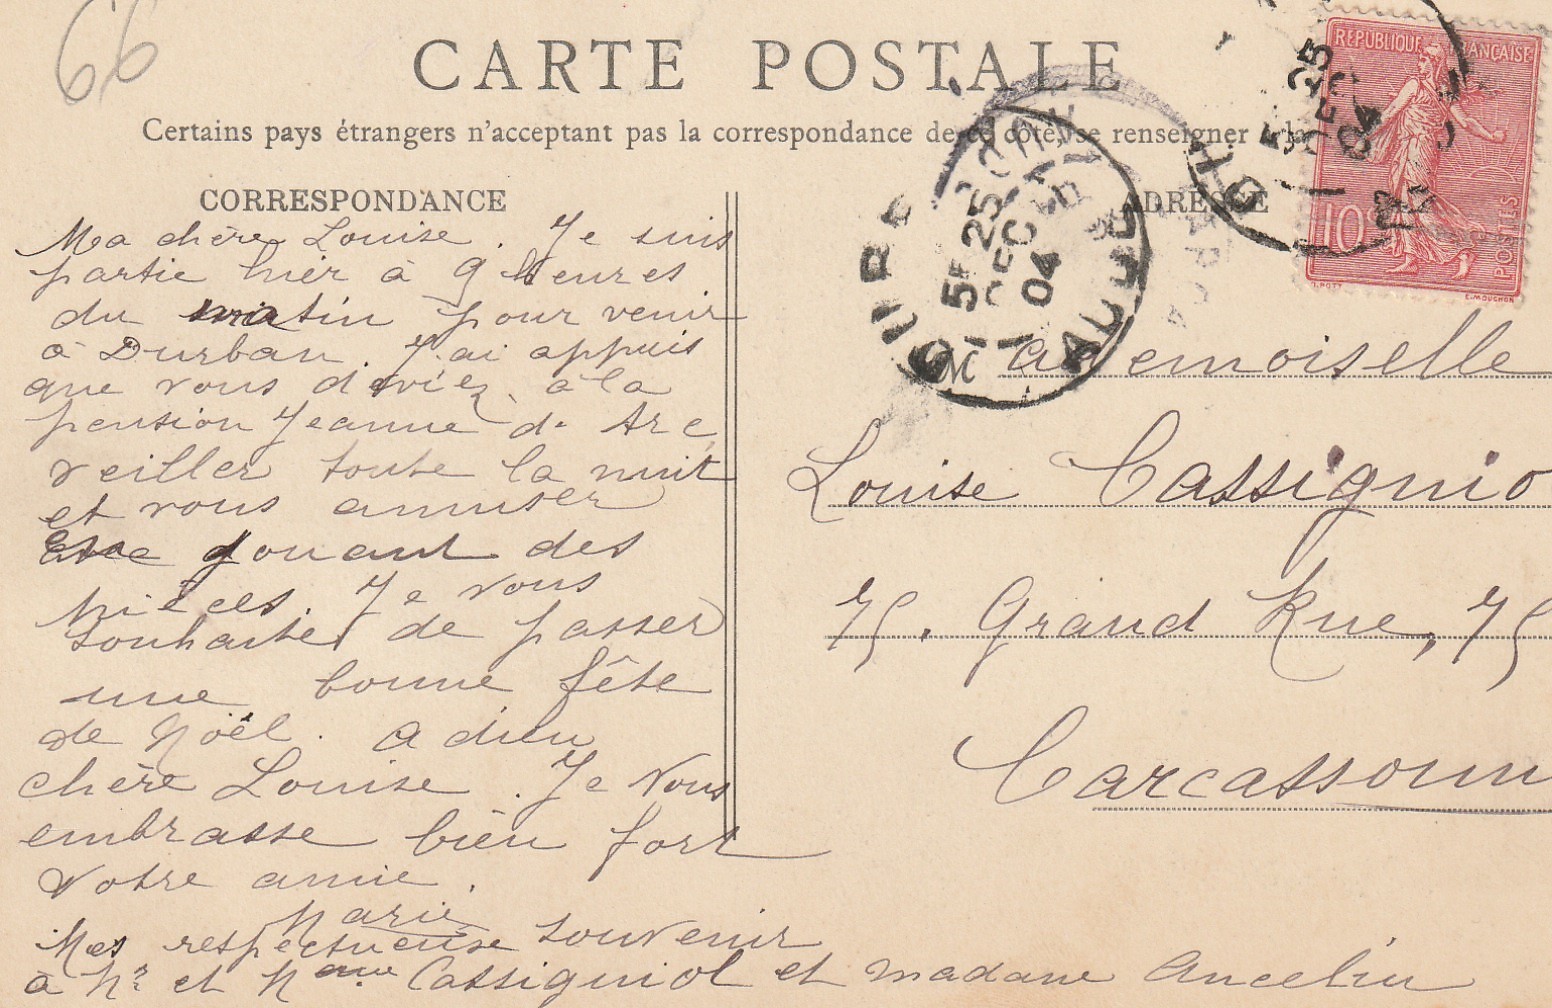 66
CARTE POSTALE
Certains pays étrangers n'acceptent pas la correspondance de ce côté, se renseigner à la
CORRESPONDANCE
Ma chère Louise. Je suis
partie hier à 9 heures
du matin pour venir
à Durban. J'ai appris
que vous deviez à la
pension Jeanne d'Arc
veiller toute la nuit
et vous amuser
jouant des
pièces. Je vous
souhaite de passer
une bonne fête
de Noël. Adieu
chère Louise. Je Vous
embrasse bien fort
Votre amie.
Marie
Mes respectueuse souvenir
à Mr et Mame Cassigniol et madame Ancelin
ADRESSE
Mademoiselle
Louise Cassignio
75. Grand Rue, 75
Carcassonn
REPUBLIQUE FRANÇAISE
10c
POSTES
E.MOUCHON
5E 25
DEC
04
AUDE
5E 25
DEC
04